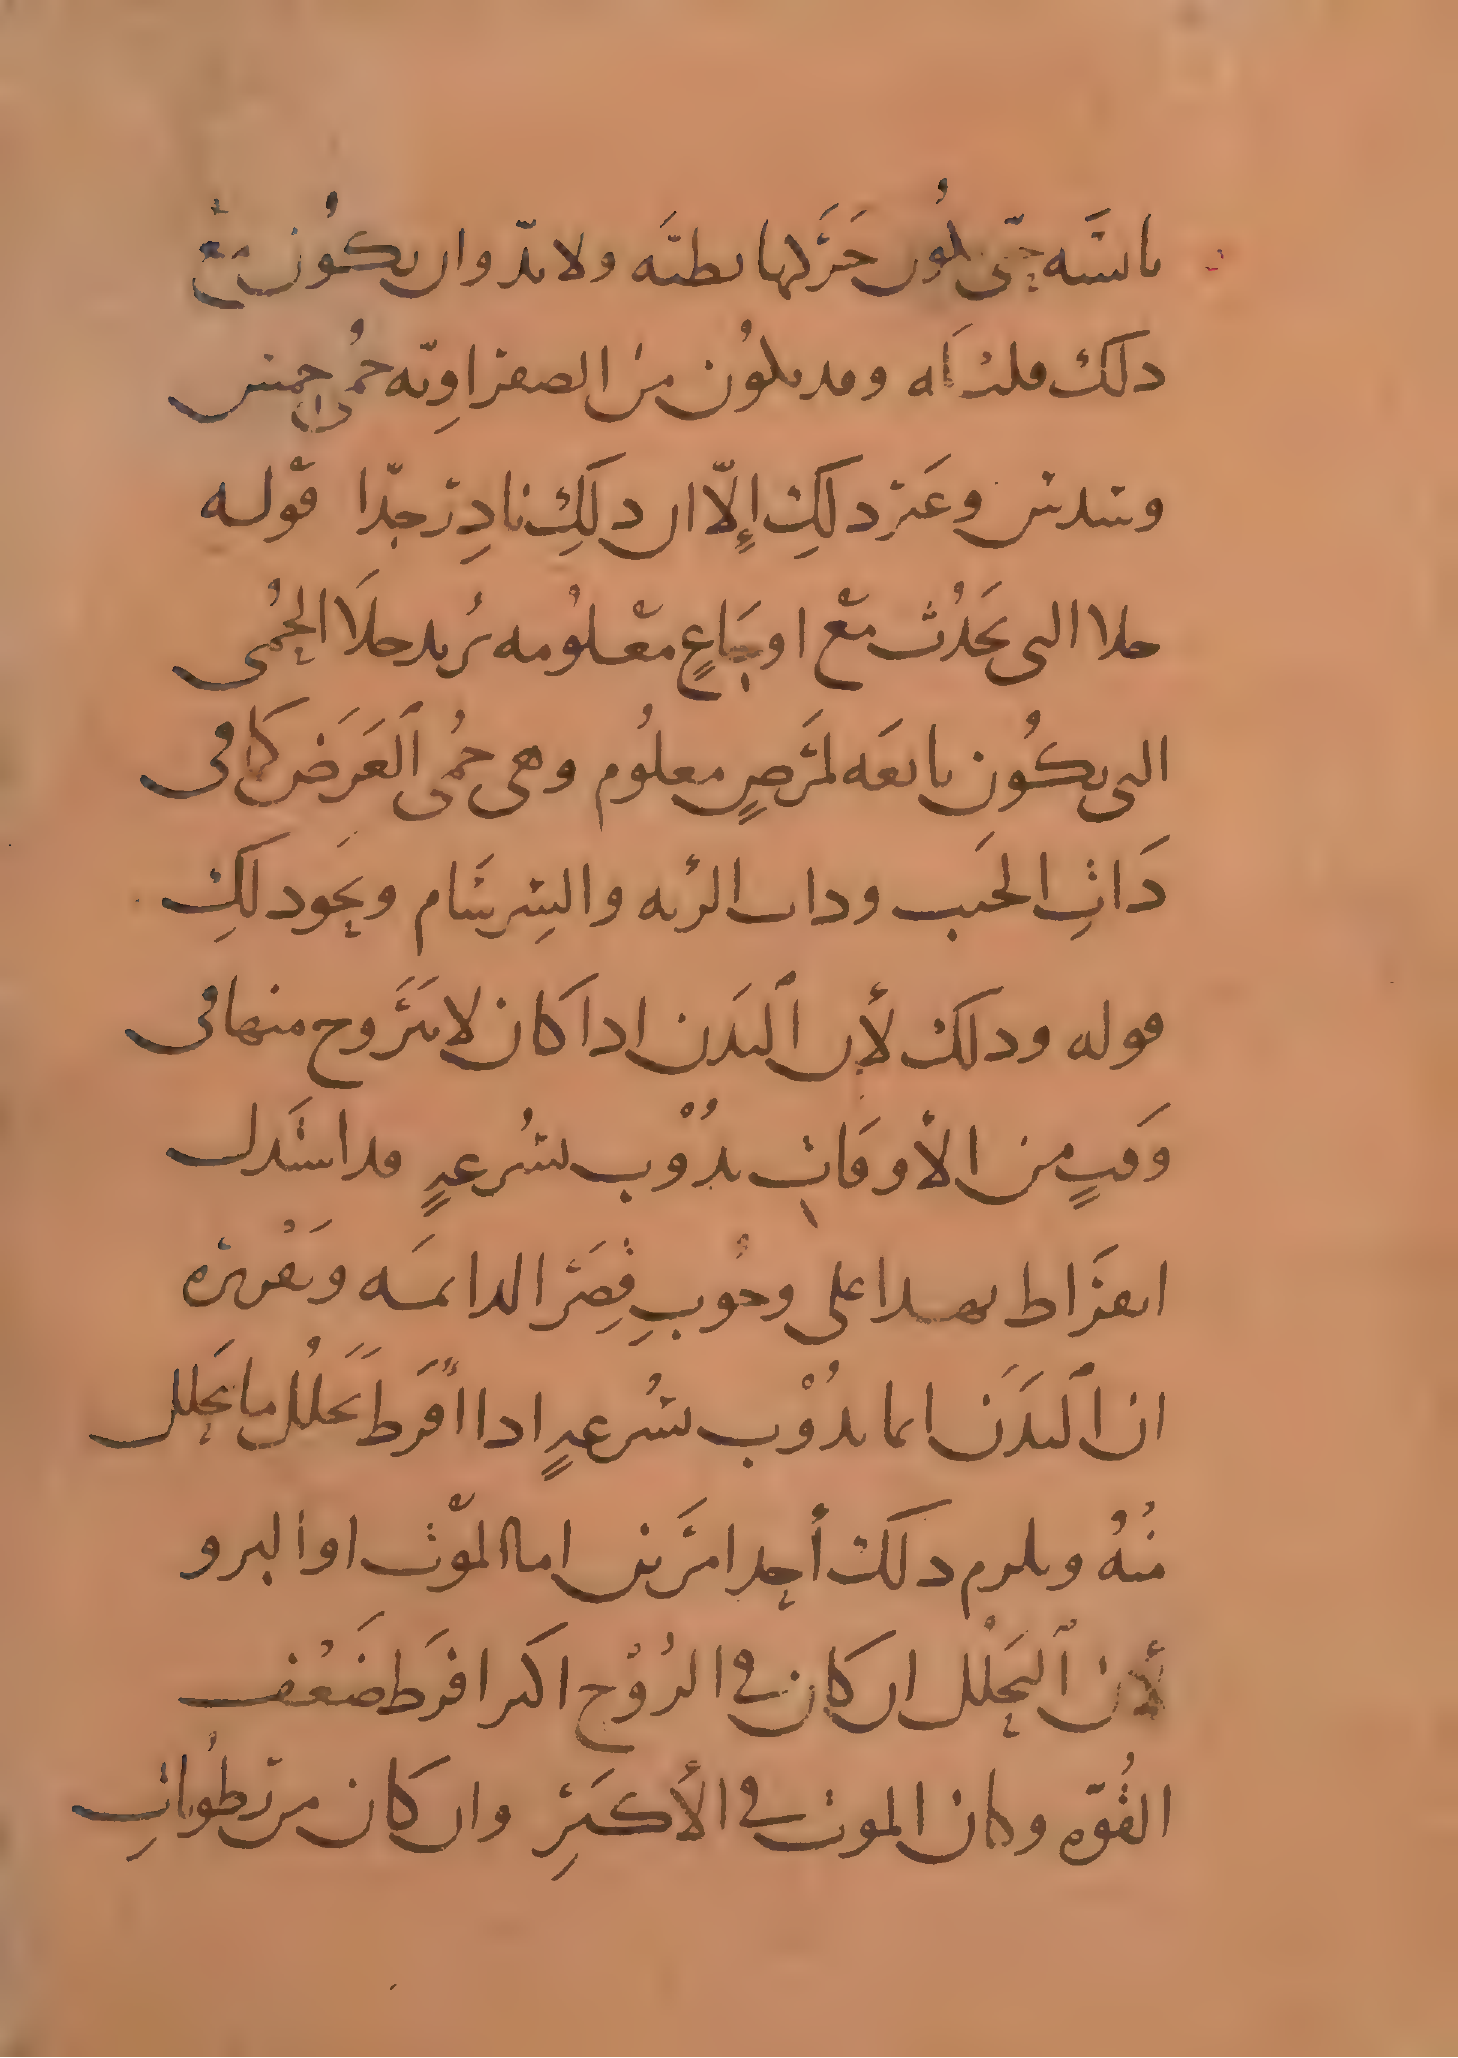 يابسة حتى يكون حركتها بطيّة ولا بدّ وان يكُون مَعَ
ذلك قليلَه وقد يكون من الصفراويّه حُمى خِمس
وسُدس وغير ذلِك إلّا ان ذلِك نادِر جدّا قوله
خلا التى تحَدُث مع اوجَاعٍ معْلوُمه يُريد خلَا الحُمى
التى يكُون تابعَه لمَرَضٍ معلوُم وهى حُمى ٱلعَرَض كما فى
ذَاتِ الجنَب وذات الرئه والسِرسَام ونحَو ذلِك
قوله وذلك لأن ٱلبَدَن اذا كان لا يتَرَوح منها فى
وَقتٍ من الأوقَات يذُوْب بسُرعهٍ قد استَدل
ابقرَاط بهذا على وجُوبِ قِصَر الدائمَه وتَقْريره
ان ٱلبَدَن انما يذُوْب بسُرعهٍ اذا أفرَط تحَلُل ما يتحَلل
منهُ ويلزم ذلك أحد امرَين اما الموْت او البرو
لأن ٱلتحَلل ان كان في الرُوْح اكثر افرَط ضَعْف
القُوّه وكان الموت في الأكثَرِ وان كان من رطوُباتِ